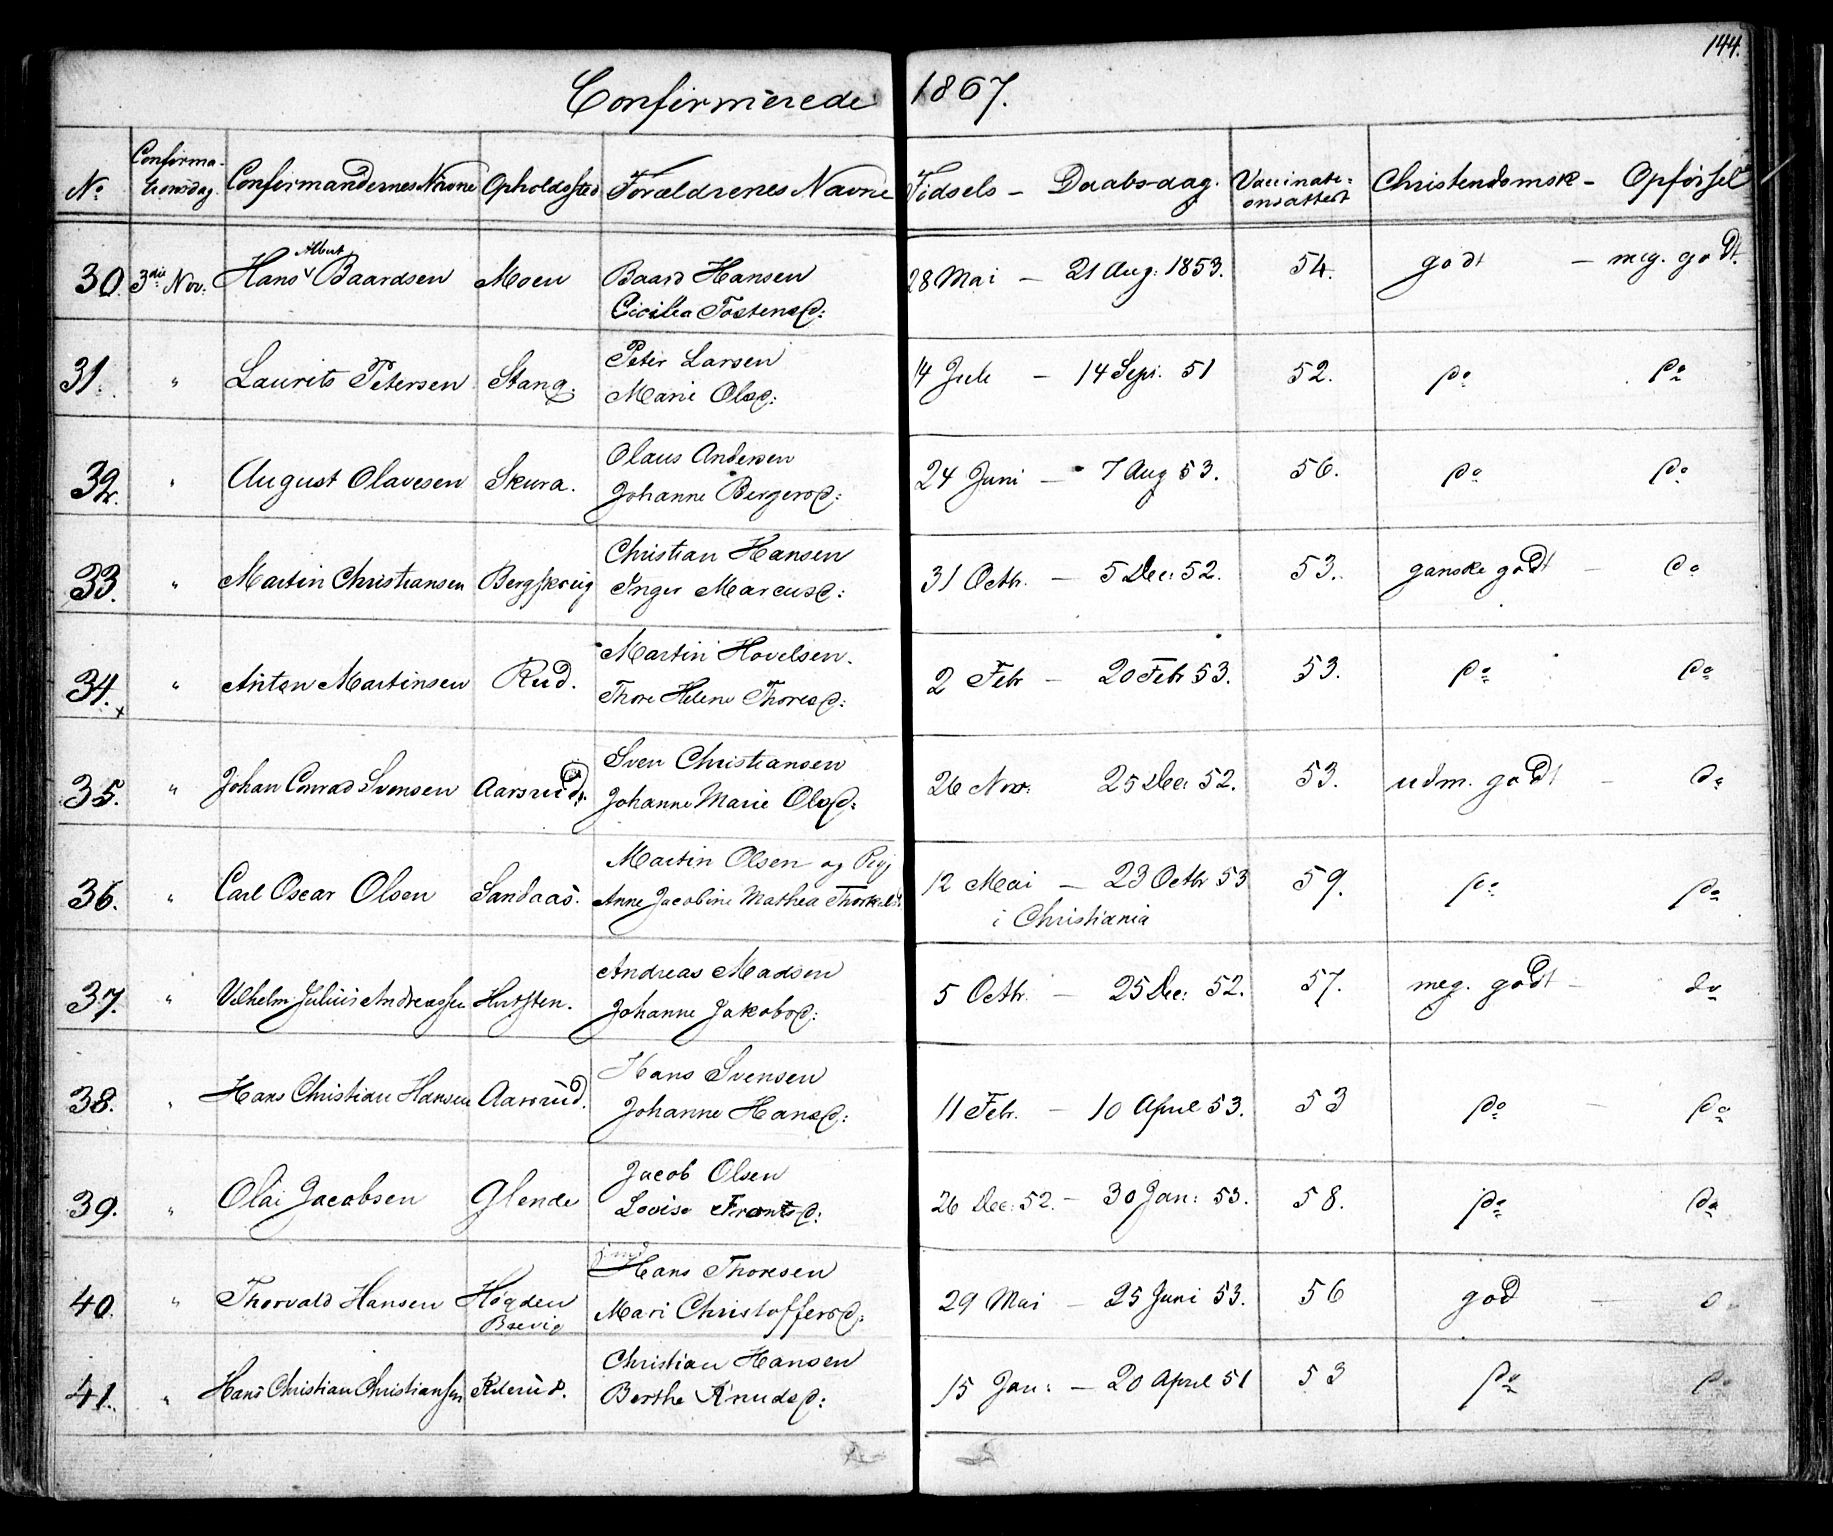 144.
Confirmerede 1867.
No Confirmationsdag. Confirmandernes Navne Opholdssted Forældrenes Navne Fødsels - Daabsdag. Vaccinationsattest Christendomsk - Opførsel
30. 3die Nov: Hans Albert Baardsen Moen Baard Hansen 28 Mai - 21 Aug: 1853. 54. godt - meg. godt.
Cicilia Tostensd:
31. " Laurits Petersen Stang. Peter Larsen 14 Juli - 14 Sept. 51 52. do do
Marie Olsd:
32. " August Olavesen Skura. Olaus Andersen 24 Juni - 7 Aug 53. 56. do do
Johanne Bergersd:
33. " Martin Christiansen Christian Hansen 31 Octb. - 5 Dec: 52. 53. ganske godt - do
Inger Marcusd:
34. " Anton Martinsen Rud. Martin Hovelsen. 2 Feb - 20 Feb 53. 53. do do
Thore Helene Thoresd:
35. " Johan Conrad Svensen Aarsrud. Sven Christiansen 26 Nov: 25 Dec: 52. 53. udm. godt - do
Johanne Marie Olsd:
36. " Carl Oscar Olsen Sandaas. Martin Olsen og Pig 12 Mai - 23 Octb 53 59. do do
Anne Jacobine Mathea i Christiania
37. " Vilhelm Julius Andreassen Andreas Madsen 5 Octb. - 25 Dec: 52. 57. meg. godt - do
Johanne Jakobsd:
38. " Hans Christian Hansen Aarsrud. Hans Svensen 11 Feb. - 10 April 53. 53 do - do
Johanne Hansd:
39. " Olai Jacobsen Glende Jacob Olsen 26 Dec: 52. - 30 Jan: 53. 58. do do
Lovise Frantsd:
40. " Thorvald Hansen Høgden Hans Thoresen 29 Mai - 25 Juni 53. 56 god -
Brevig Mari Christoffersd:
41. " Hans Christian Christiansen Christian Hansen 15 Jan: - 20 April 51 53 do do
Berthe Knudsd: